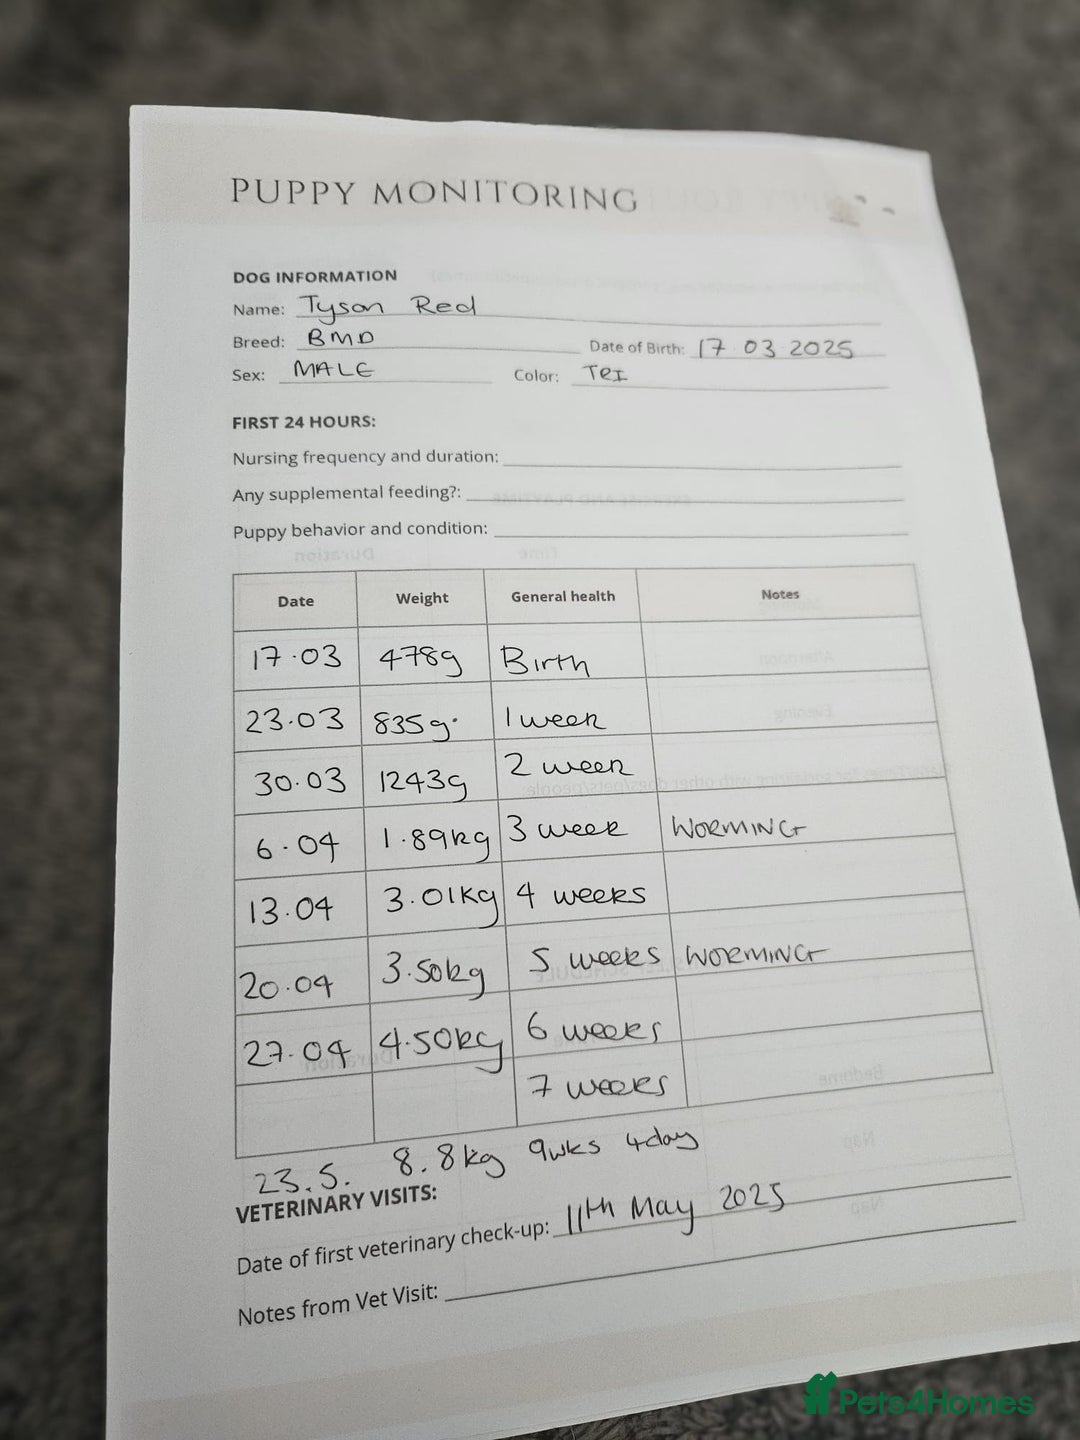 PUPPY MONITORING
DOG INFORMATION
Name: Tyson Red
Breed: BMD Date of Birth: 17.03 2025
Sex: MALE Color: TRI
FIRST 24 HOURS:
Nursing frequency and duration:
Any supplemental feeding?:
Puppy behavior and condition:
Date Weight General health Notes
17.03 478g Birth
23.03 835g. 1 week
30.03 1243g 2 week
6.04 1.89kg 3 week WORMING
13.04 3.01kg 4 weeks
20.04 3.50kg 5 weeks WORMING
27.04 4.50kg 6 weeks
7 weeks
23.5. 8.8kg 9wks 4day
VETERINARY VISITS:
Date of first veterinary check-up: 11th May 2025
Notes from Vet Visit:
Pets4Homes